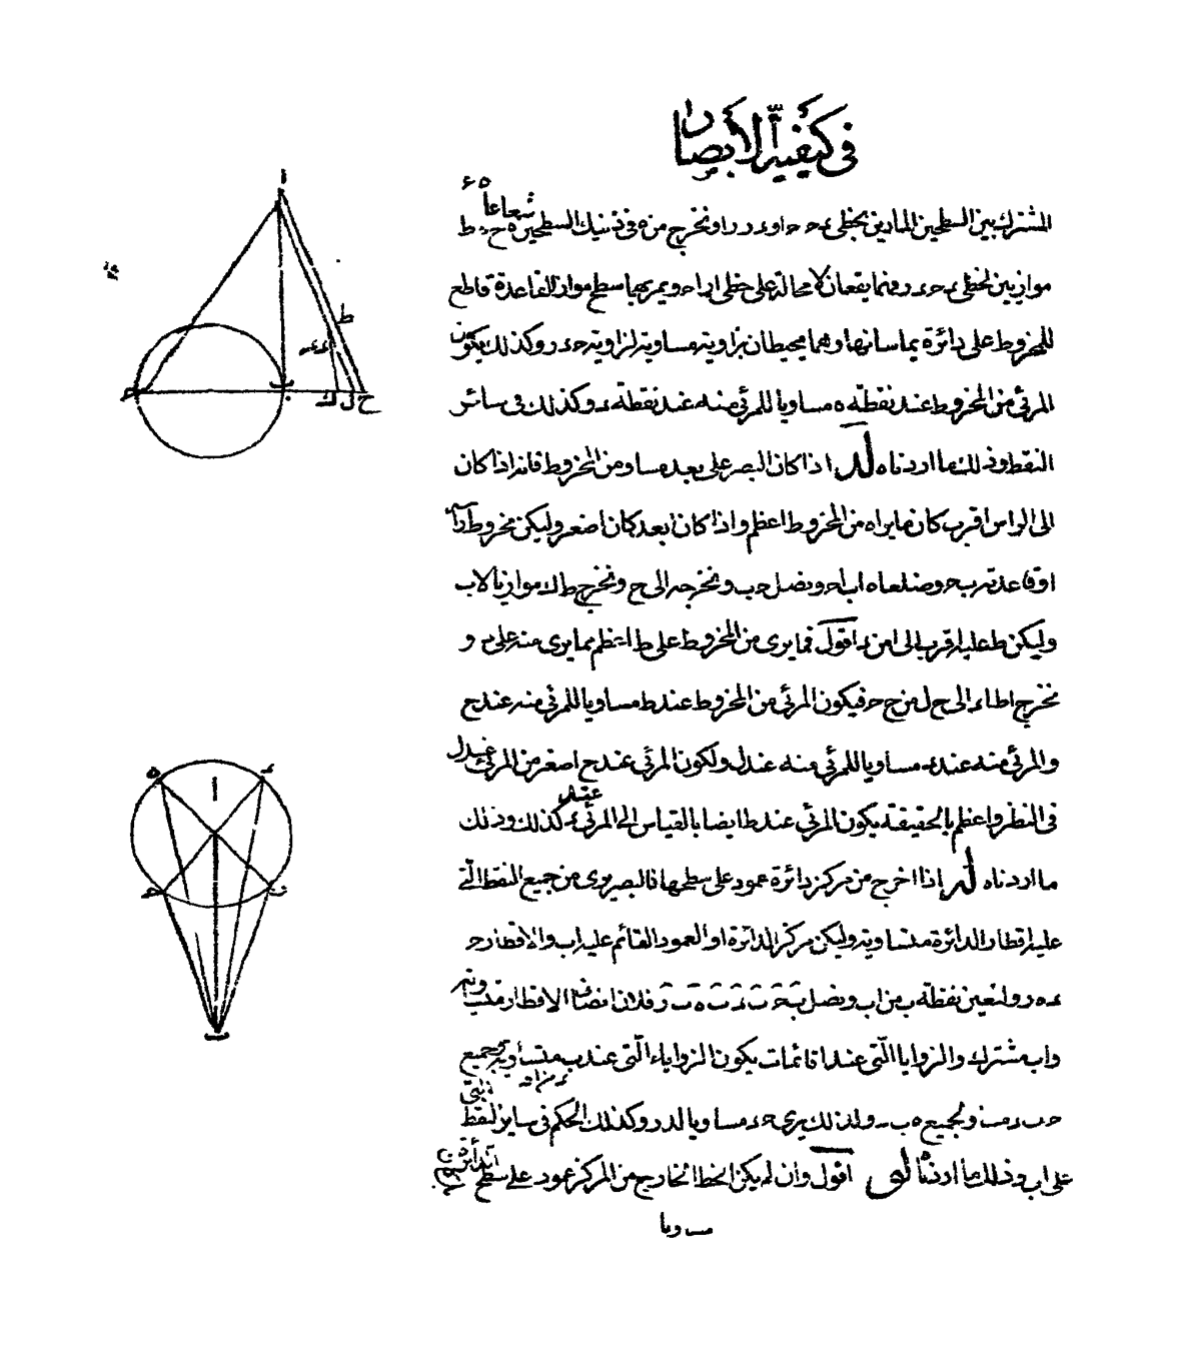 في كيفية الأبصار
المشترك بين السطحين المارين بخطى ونخرج من ه في ذنيك السطحين شعاعا
موازيين لخطى فهما يقعان لا محالة على خطى ويمر بهما سطح مواز لقاعدة قاطع
للمخروط على دائرة يماسانها وهما محيطان بزاوية مساوية لزاوية وكذلك يكون
المرئي من المخروط عند نقطة ه مساويا للمرئي منه عند نقطة ء وكذلك في سائر
النقط وذلك ما اردناه لد اذا كان البصر على بعد مساو من المخروط فانه اذا كان
الى الراس اقرب كان ما يراه من المخروط اعظم واذا كان ابعد كان اصغر وليكن مخروط
وقاعدته ب ح وضلعاه اب اح ونصل ح ب ونخرجه الى ح ونخرج ط ك موازيا لاب
وليكن ط عليه اقرب الى ا من ء اقول فما يرى من المخروط على ط اعظم مما يرى منه على ء و
نخرج اط اء الى ح ل من ح ح فيكون المرئي من المخروط عند ط مساويا للمرئي منه عند ح
والمرئي منه عند ء مساويا للمرئي منه عند ل ولكون المرئي عند ح اصغر من المرئي عند ل
في النظر واعظم بالحقيقة يكون المرئي عند ط ايضا بالقياس الى المرئي عند ء كذلك وذلك
ما اردناه له إذا اخرج من مركز دائرة عمود على سطحها فالبصر يرى من جميع النقط الّتي
عليه اقطار الدائرة متساوية وليكن مركز الدائرة ا والعمود القائم عليه اب والاقطار ح
ء ه ر ولنعين نقطة ب من اب ونصل ب ح ب ء ب ه ب ر فلان انصاف الاقطار متساوية
واب مشترك والزوايا الّتي عند ا قائمات يكون الزوايا الّتي عند ب متساوية
ولذلك يرى ح ء مساويا له ر وكذلك الحكم في ساير النقط التي
على اب وذلك ما اردناه لو اقول وان لم يكن الخط الخارج من المركز عمود على سطح الدائرة
ا
ط
ب
ح
ل
ك
ه
ء
ا
ح
ر
ب